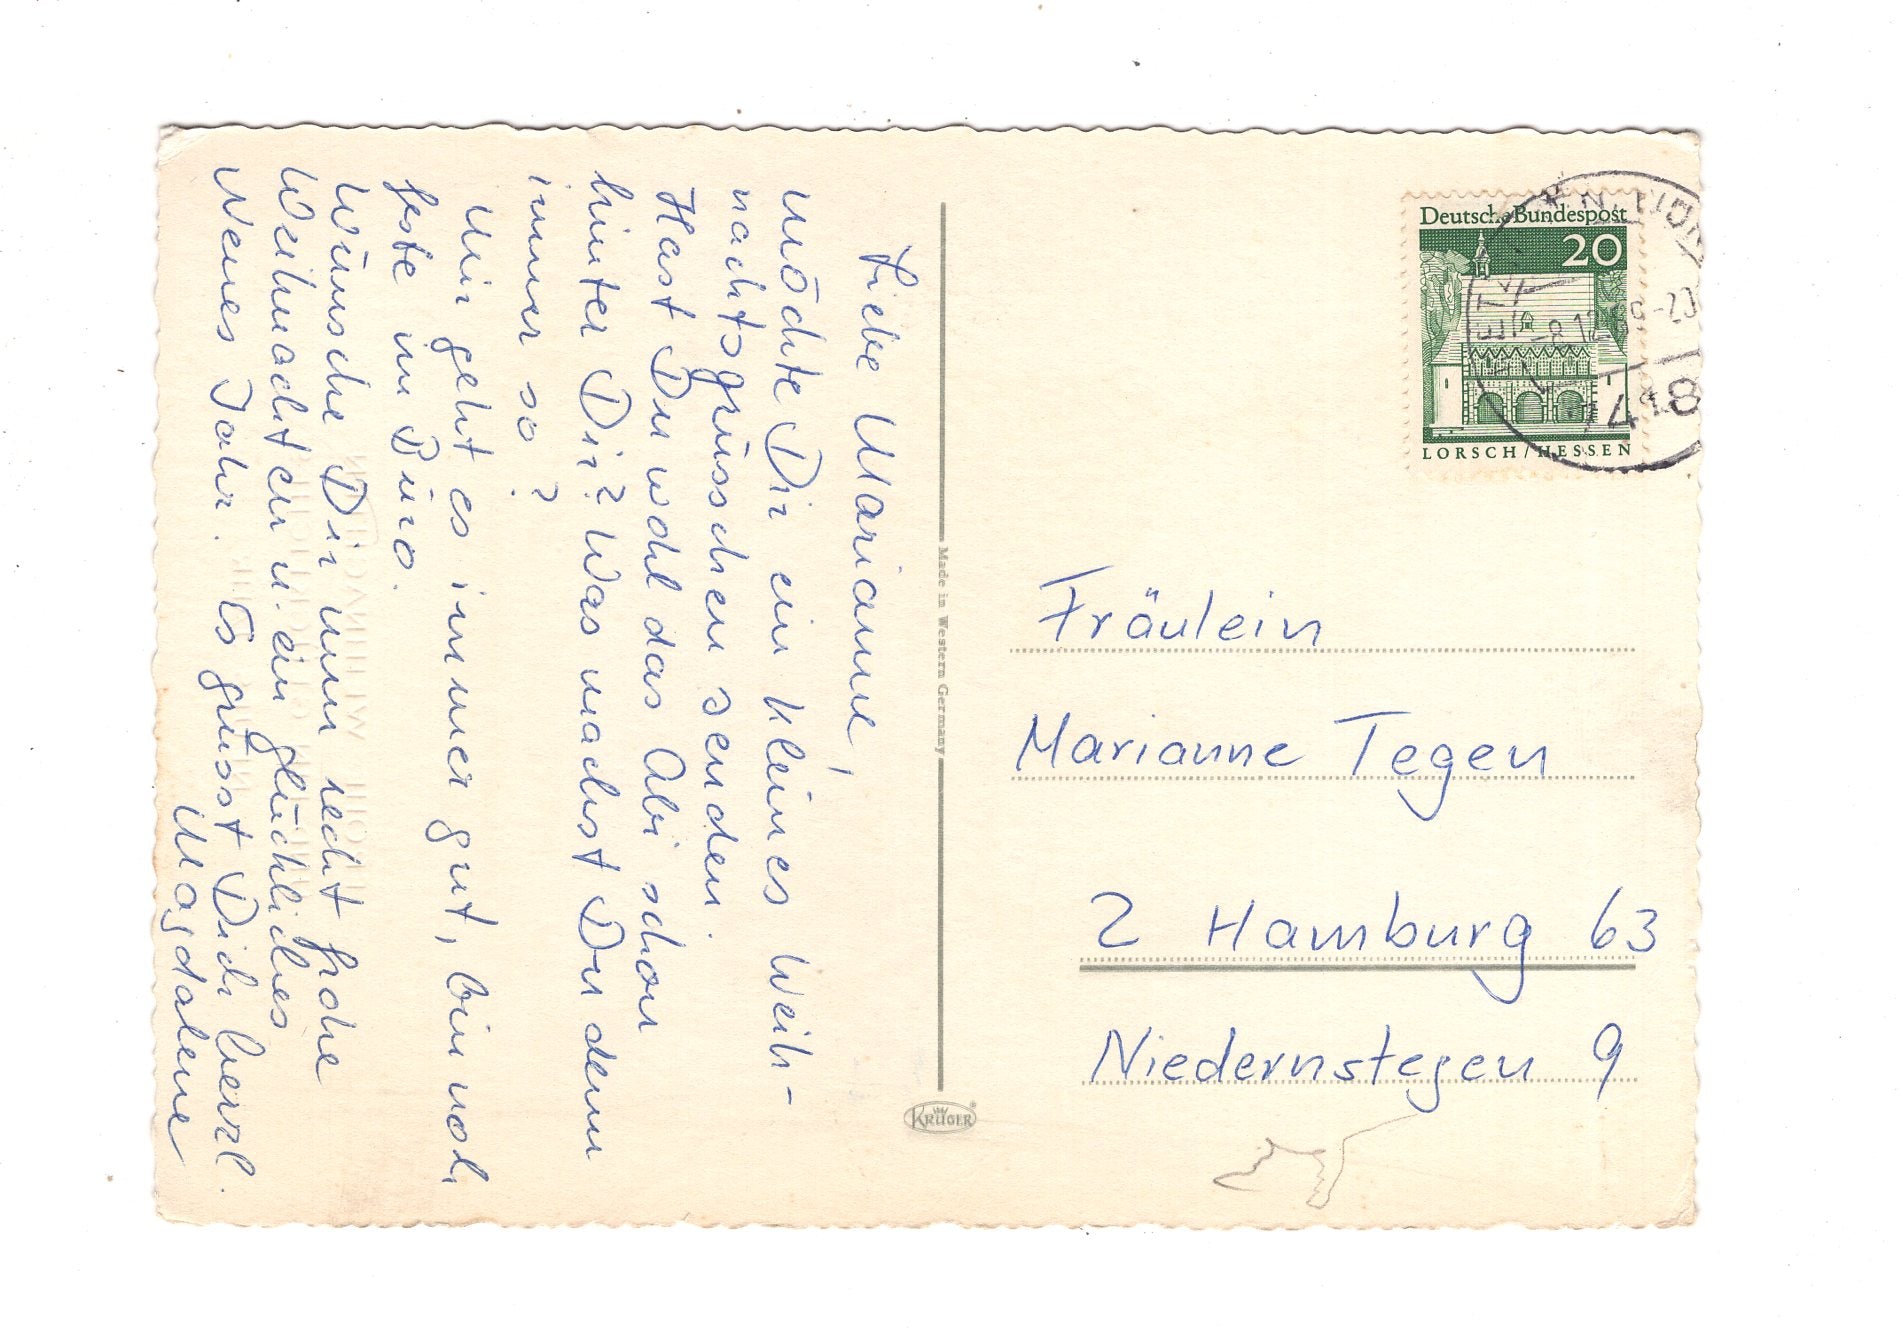 Liebe Marianne!
Möchte Dir ein kleines Weih-
nachtsgrüsschen senden.
Hast Du wohl das Abi schon
hinter Dir? Was machst Du denn
immer so?
Mir geht es immer gut, bin noch
feste im Büro.
Wünsche Dir nun recht frohe
Weihnachten u. ein glückliches
Neues Jahr. Es grüsst Dich herzl.
Magdalene
Made in Western Germany
KRÜGER
Deutsche Bundespost
20
LORSCH/HESSEN
418
Fräulein
Marianne Tegen
2 Hamburg 63
Niedernstegen 9